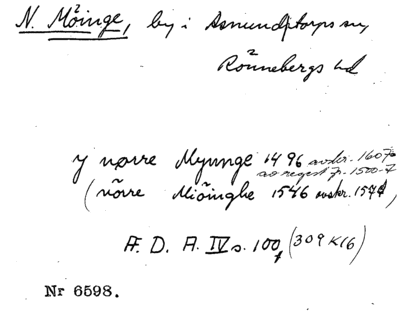 N. Möinge, by i Asmundtorps sn
Rönnebergs hd
y nørre Myunge 1496 avskr. 1607
ao regest fr. 1500-t
(nörre Miöinghe 1546 avskr. 1574)
Æ. D. A. IV s. 100, (309 K16)
Nr 6598.